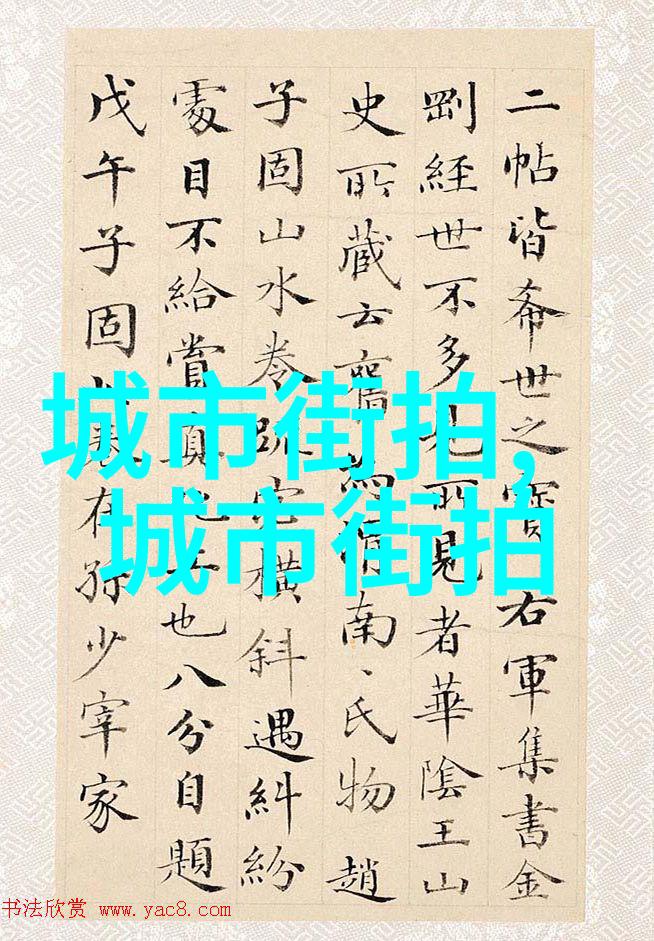 二帖皆希世之寶右軍集書金
剛經世不多所見者華陰王山
史所藏云舊為南、氏物趙
子固山水卷橫斜遇糾紛
處目不給賞真也八分自題
戊午子固卷在孫少宰家
城市街拍,
城市街拍
书法欣赏 www.yac8.com